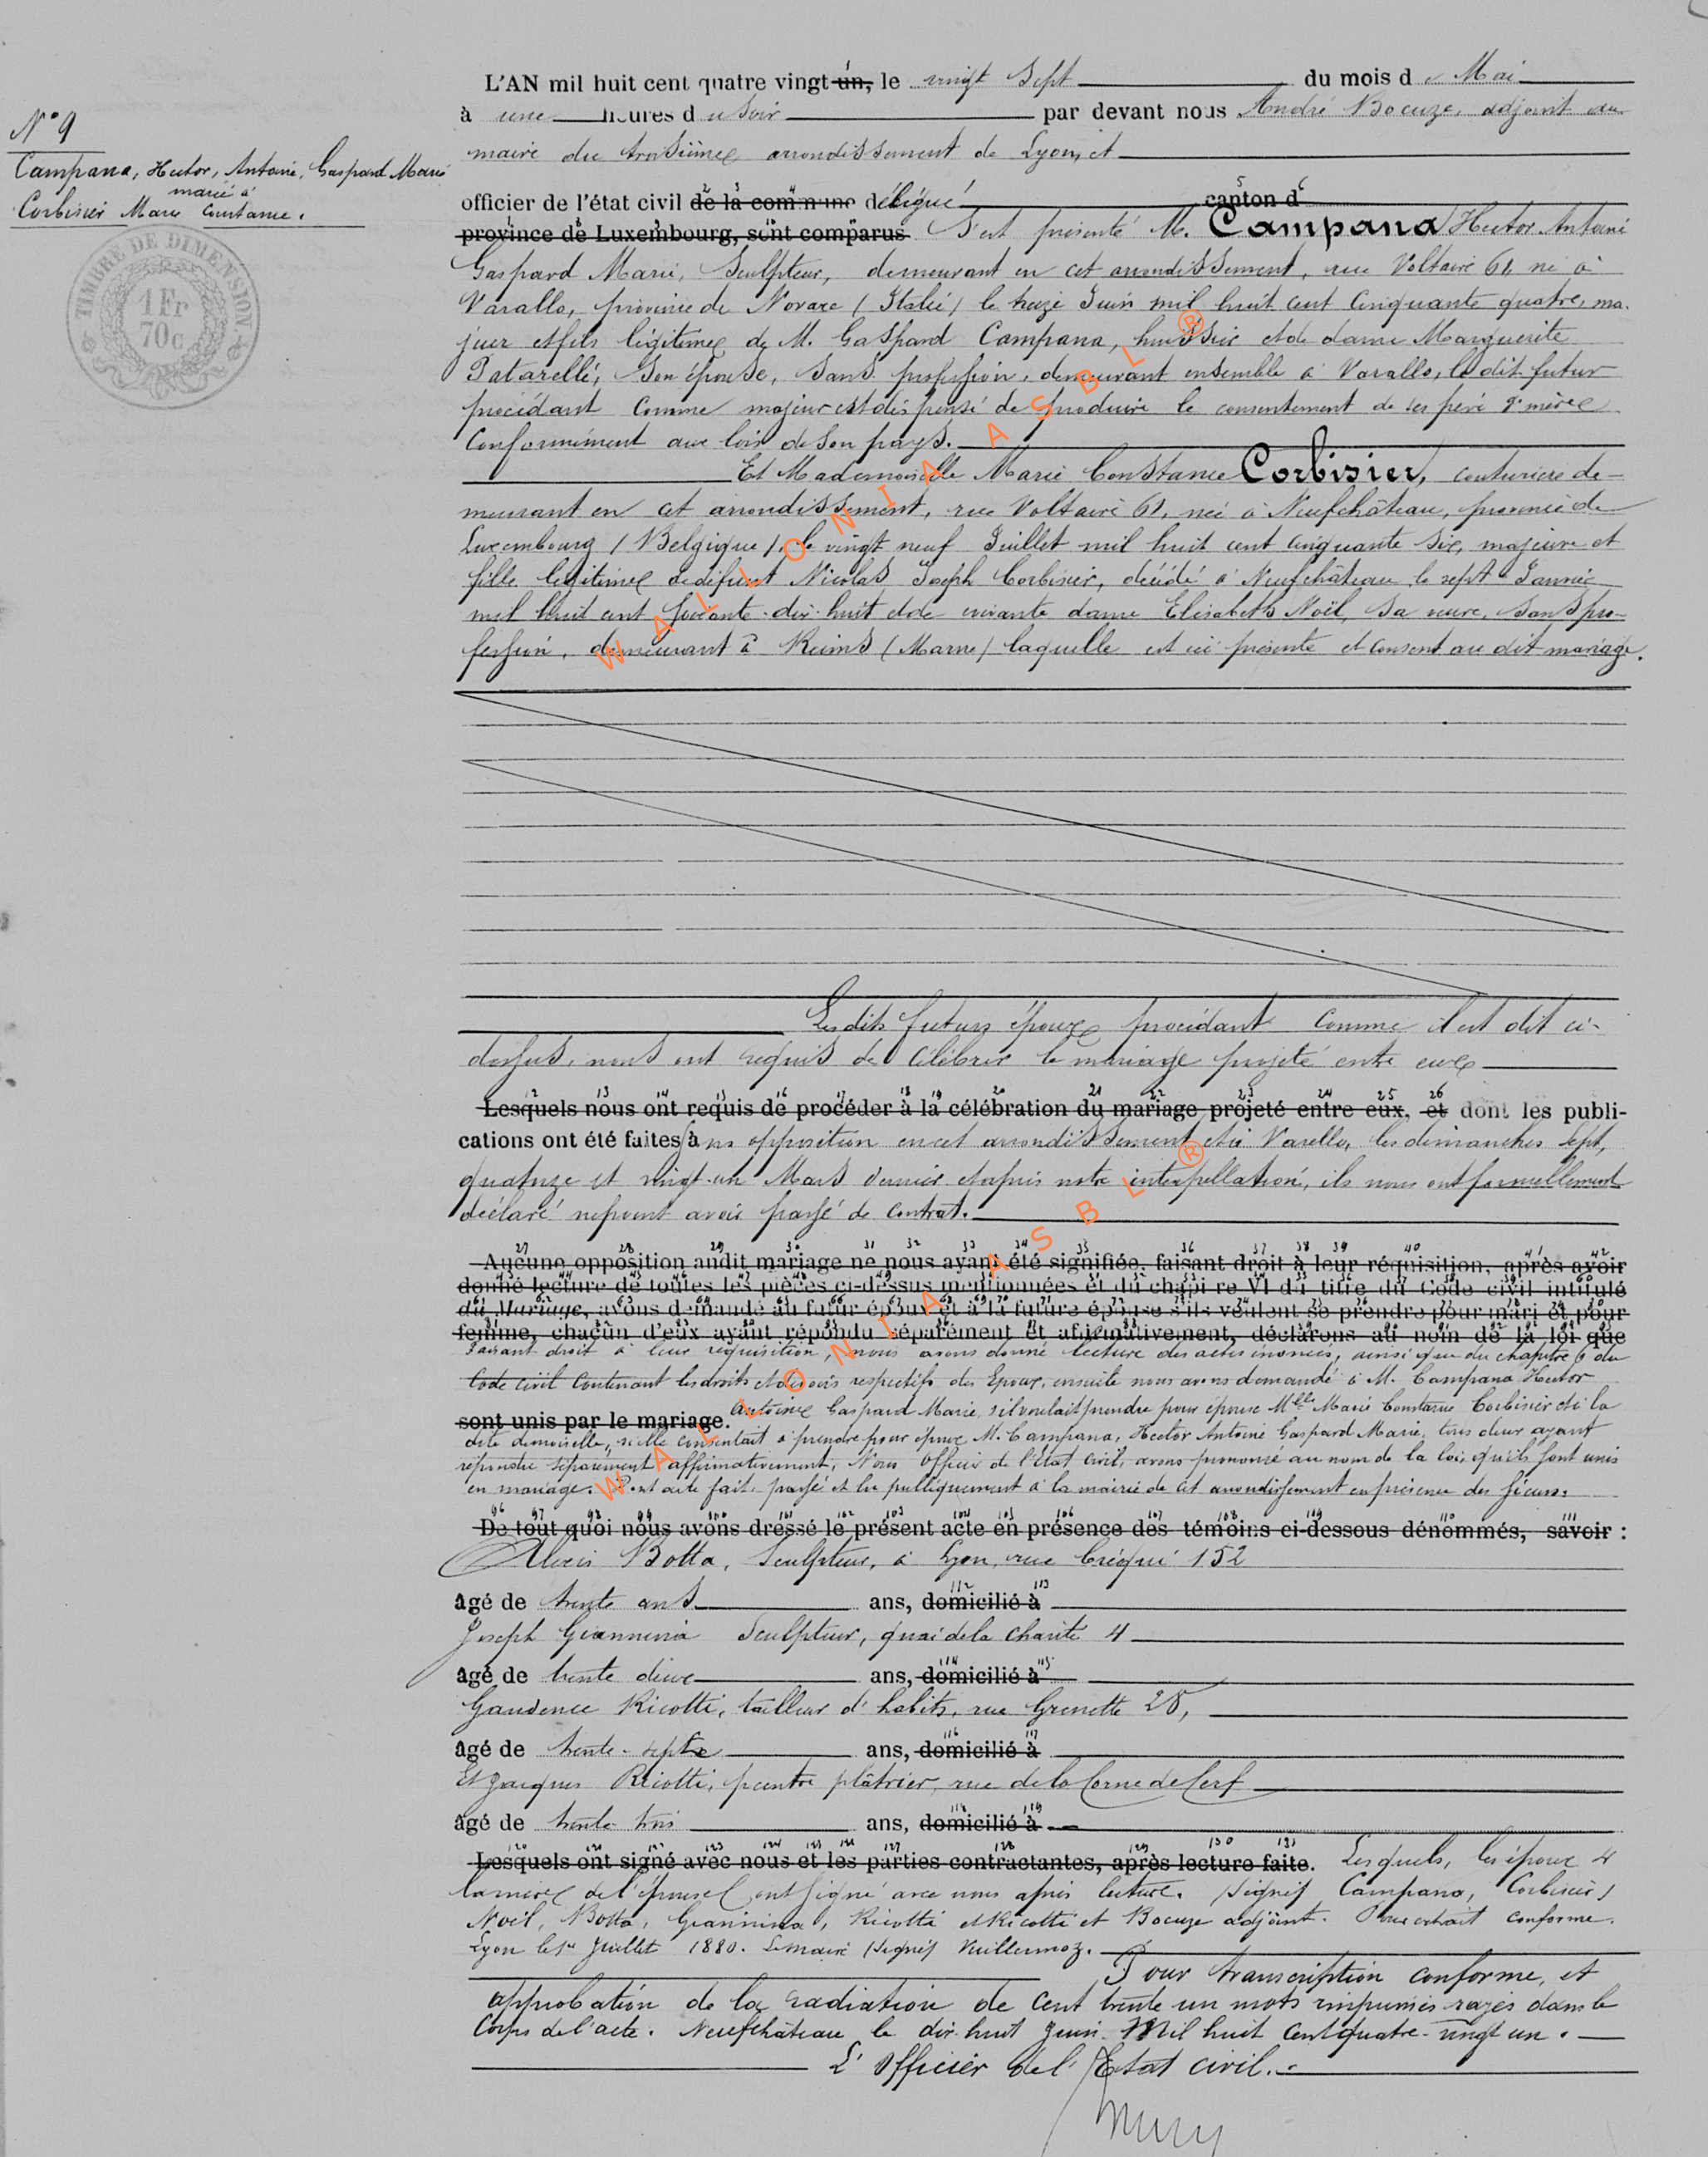 N° 9
Campana, Hector, Antoine, Gaspard Marie
marié à
Corbisier Marie Constance.
TIMBRE DE DIMENSION
1 Fr
70c
L'AN mil huit cent quatre vingt un, le vingt sept du mois de Mai
à une heures du soir par devant nous André Bocuze, adjoint au
maire du troisième arrondissement de Lyon, et
officier de l'état civil de la commune délégué canton d
province de Luxembourg, sont comparus S'est présenté M. Campana Hector Antoine
Gaspard Marie, Sculpteur, demeurant en cet arrondissement, rue Voltaire 61, né à
Varallo, province de Novare (Italie) le treize Juin mil huit cent cinquante quatre, ma-
jeur et fils légitime de M. Gaspard Campana, huissier et de dame Marguerite
Patarelli, son épouse, sans profession, demeurant ensemble à Varallo, le dit futur
procédant comme majeur est dispensé de produire le consentement de ses père & mère
conformément aux lois de son pays.
Et Mademoiselle Marie Constance Corbisier, couturière de-
meurant en cet arrondissement, rue Voltaire 61, née à Neufchâteau, province de
Luxembourg (Belgique), le vingt neuf Juillet mil huit cent cinquante six, majeure et
fille légitime de défunt Nicolas Joseph Corbisier, décédé à Neufchâteau le sept Janvier
mil huit cent soixante-dix-huit et de vivante dame Elisabeth Noël, sa veuve, sans pro-
fession, demeurant à Reims (Marne) laquelle est ici présente et consent au dit mariage.
Les dits futurs époux procédant comme il est dit ci-
dessus, nous ont requis de célébrer le mariage projeté entre eux
Lesquels nous ont requis de procéder à la célébration du mariage projeté entre eux, et dont les publi-
cations ont été faites à sans opposition en cet arrondissement et à Varallo, les dimanches sept,
quatorze et vingt-un Mars dernier et après notre interpellation, ils nous ont formellement
déclaré ne point avoir passé de contrat.
Aucune opposition audit mariage ne nous ayant été signifiée, faisant droit à leur réquisition, après avoir
donné lecture de toutes les pièces ci-dessus mentionnées et du chapitre VI du titre du Code civil intitulé
du Mariage, avons demandé au futur époux et à la future épouse s'ils veulent se prendre pour mari et pour
femme, chacun d'eux ayant répondu séparément et affirmativement, déclarons au nom de la loi que
Faisant droit à leur réquisition, nous avons donné lecture des actes énoncés, ainsi que du chapitre 6 du
Code civil contenant les droits et devoirs respectifs des Epoux, ensuite nous avons demandé à M. Campana Hector
sont unis par le mariage. Antoine Gaspard Marie, s'il voulait prendre pour épouse Mlle Marie Constance Corbisier et à la
dite demoiselle, si elle consentait à prendre pour époux M. Campana, Hector Antoine Gaspard Marie, tous deux ayant
répondu séparément affirmativement, Nous Officier de l'Etat Civil, avons prononcé au nom de la loi qu'ils sont unis
en mariage. Dont acte fait, passé et lu publiquement à la mairie de cet arrondissement en présence des sieurs:
De tout quoi nous avons dressé le présent acte en présence des témoins ci-dessous dénommés, savoir :
Alexis Botta, Sculpteur, à Lyon, rue Créqui 152
âgé de trente ans ans, domicilié à
Joseph Giannina Sculpteur, quai de la Charité 4
âgé de trente deux ans, domicilié à
Gaudence Ricotti, tailleur d'habits, rue Grenette 28,
âgé de trente-sept ans, domicilié à
Et Jacques Ricotti, peintre plâtrier, rue de la Corne de Cerf
âgé de trente trois ans, domicilié à
Lesquels ont signé avec nous et les parties contractantes, après lecture faite. Lesquels, les époux &
la mère de l'épouse ont signé avec nous après lecture. (signé) Campana, Corbisier,
Noël, Botta, Giannina, Ricotti et Ricotti et Bocuze adjoint. Pour extrait conforme.
Lyon le 1er Juillet 1880. Le maire (signé) Vuillermoz.
Pour transcription conforme, et
approbation de la radiation de cent trente un mots imprimés rayés dans le
Corps de l'acte. Neufchâteau le dix-huit Juin Mil huit Cent quatre-vingt un.
L'Officier de l'Etat civil.
WALLONIA ASBL ®
WALLONIA ASBL ®